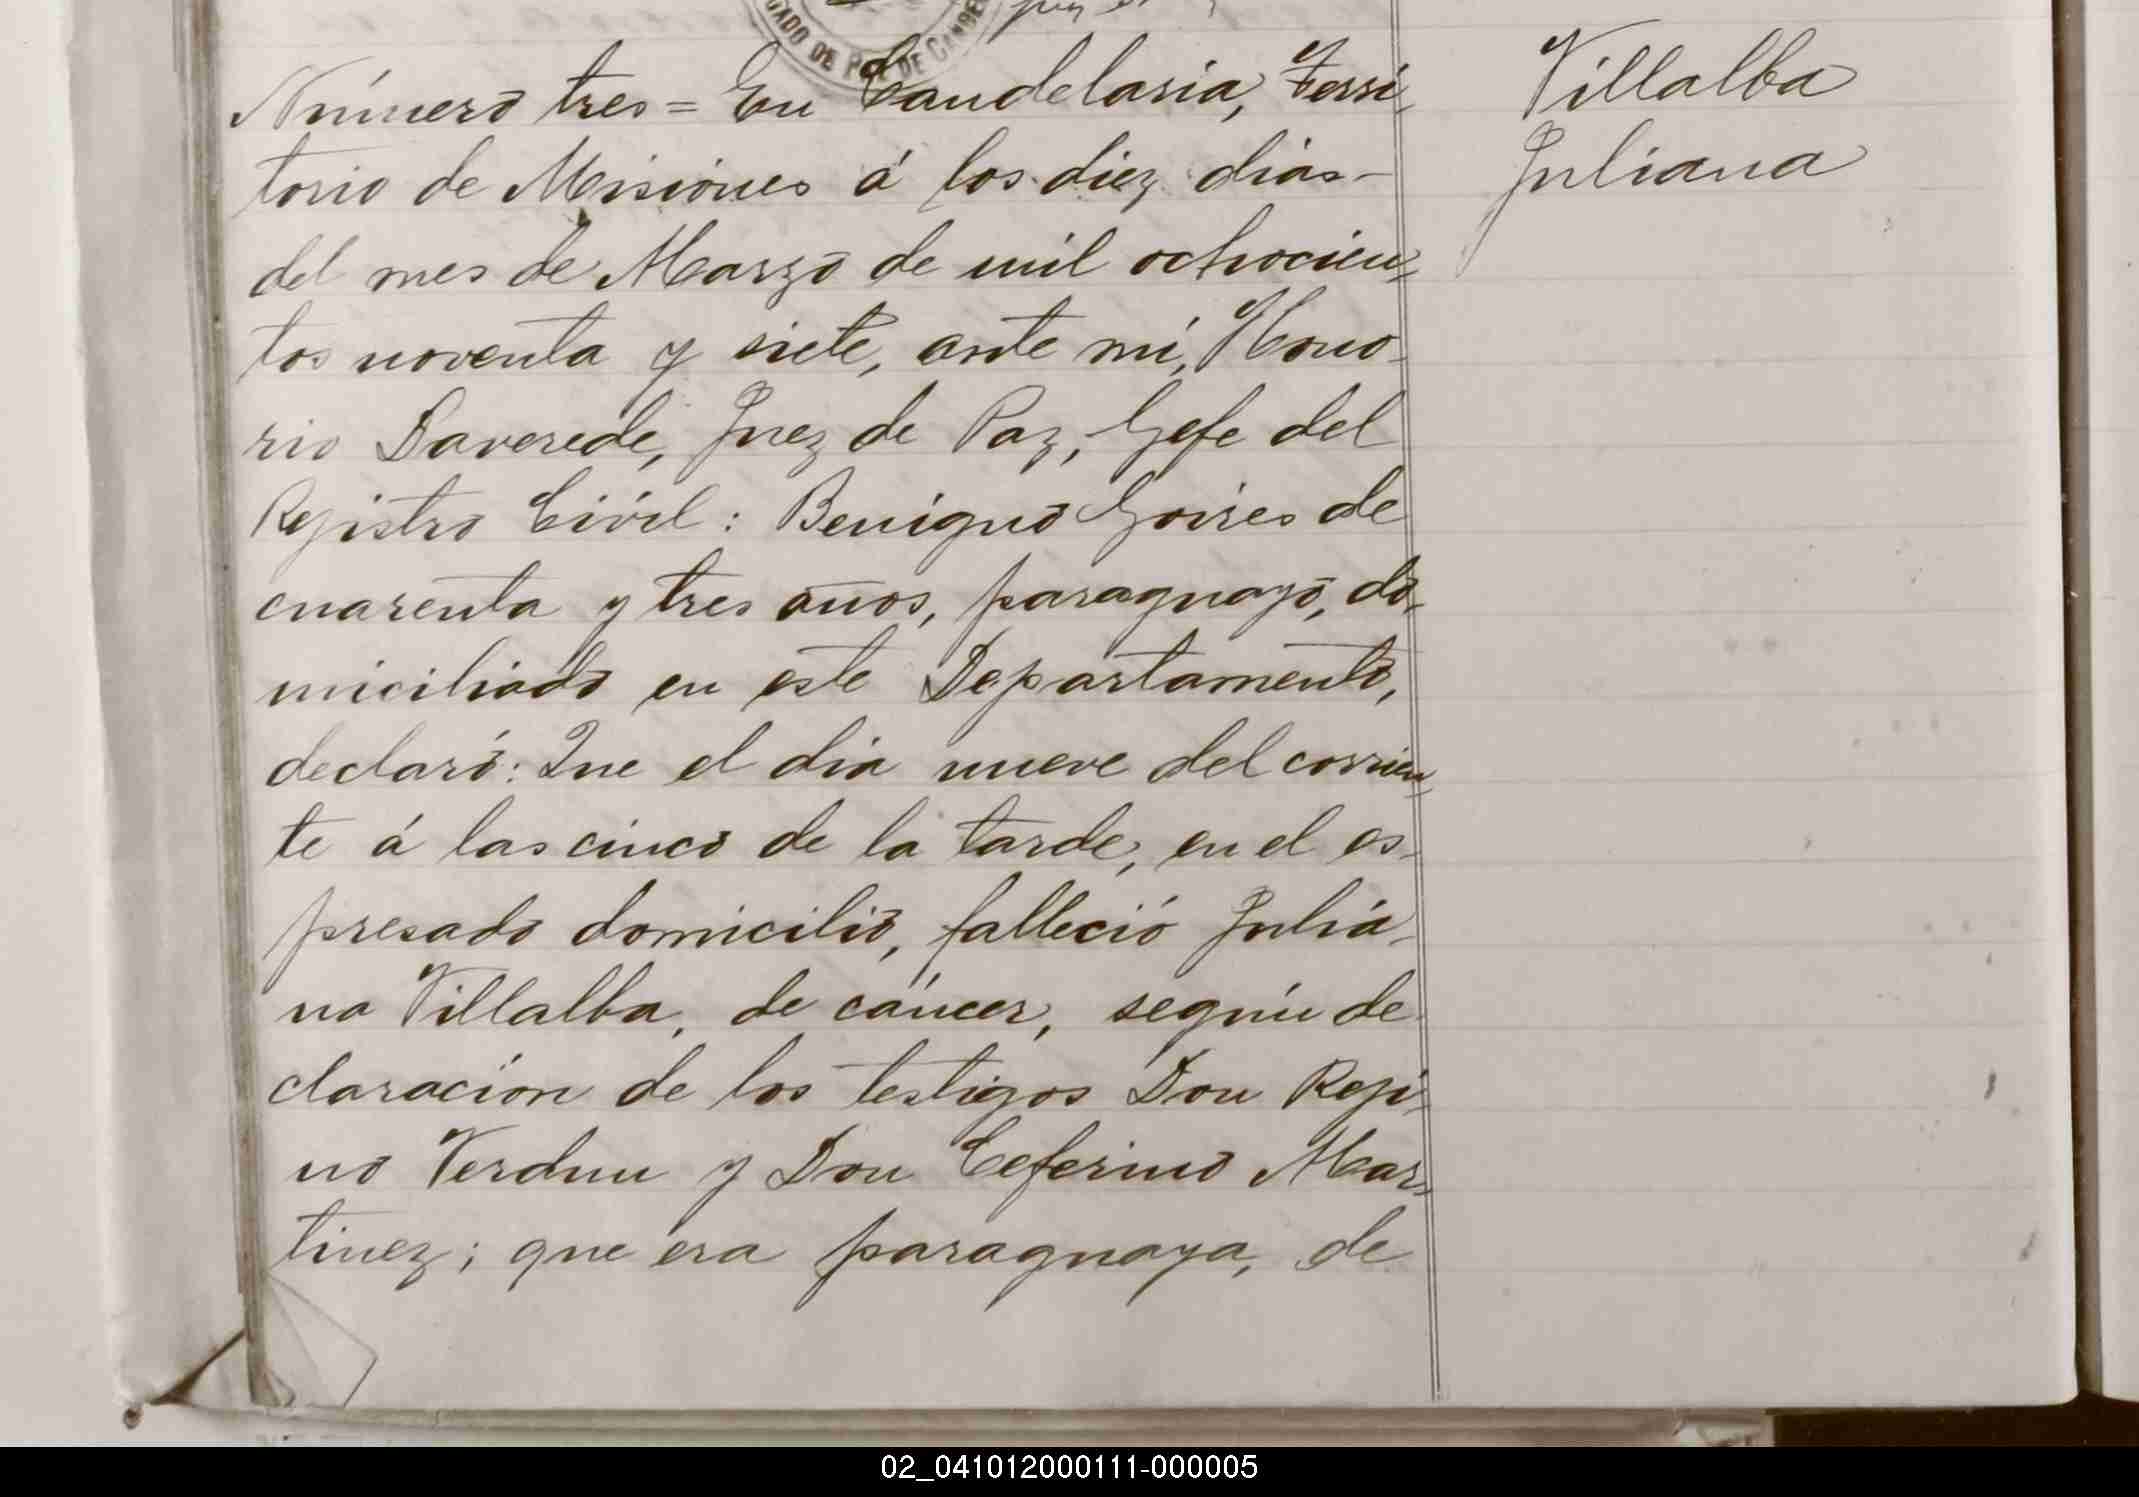 JUZGADO DE PAZ DE CANDE
Número tres = En Candelaria, Terri-
torio de Misiones á los diez dias-
del mes de Marzo de mil ochocien-
tos noventa y siete, ante mí, Hono-
rio Daverede, Juez de Paz, Gefe del
Registro Civil: Benigno Goires de
cuarenta y tres años, paraguayo, do-
miciliado en este Departamento,
declaró: Que el dia nueve del corrien-
te á las cinco de la tarde, en el es-
presado domicilio, falleció Julia-
na Villalba, de cáncer, según de-
claración de los testigos Don Reji-
no Verdun y Don Ceferino Mar-
tinez; que era paraguaya, de
Villalba
Juliana
02_041012000111-000005